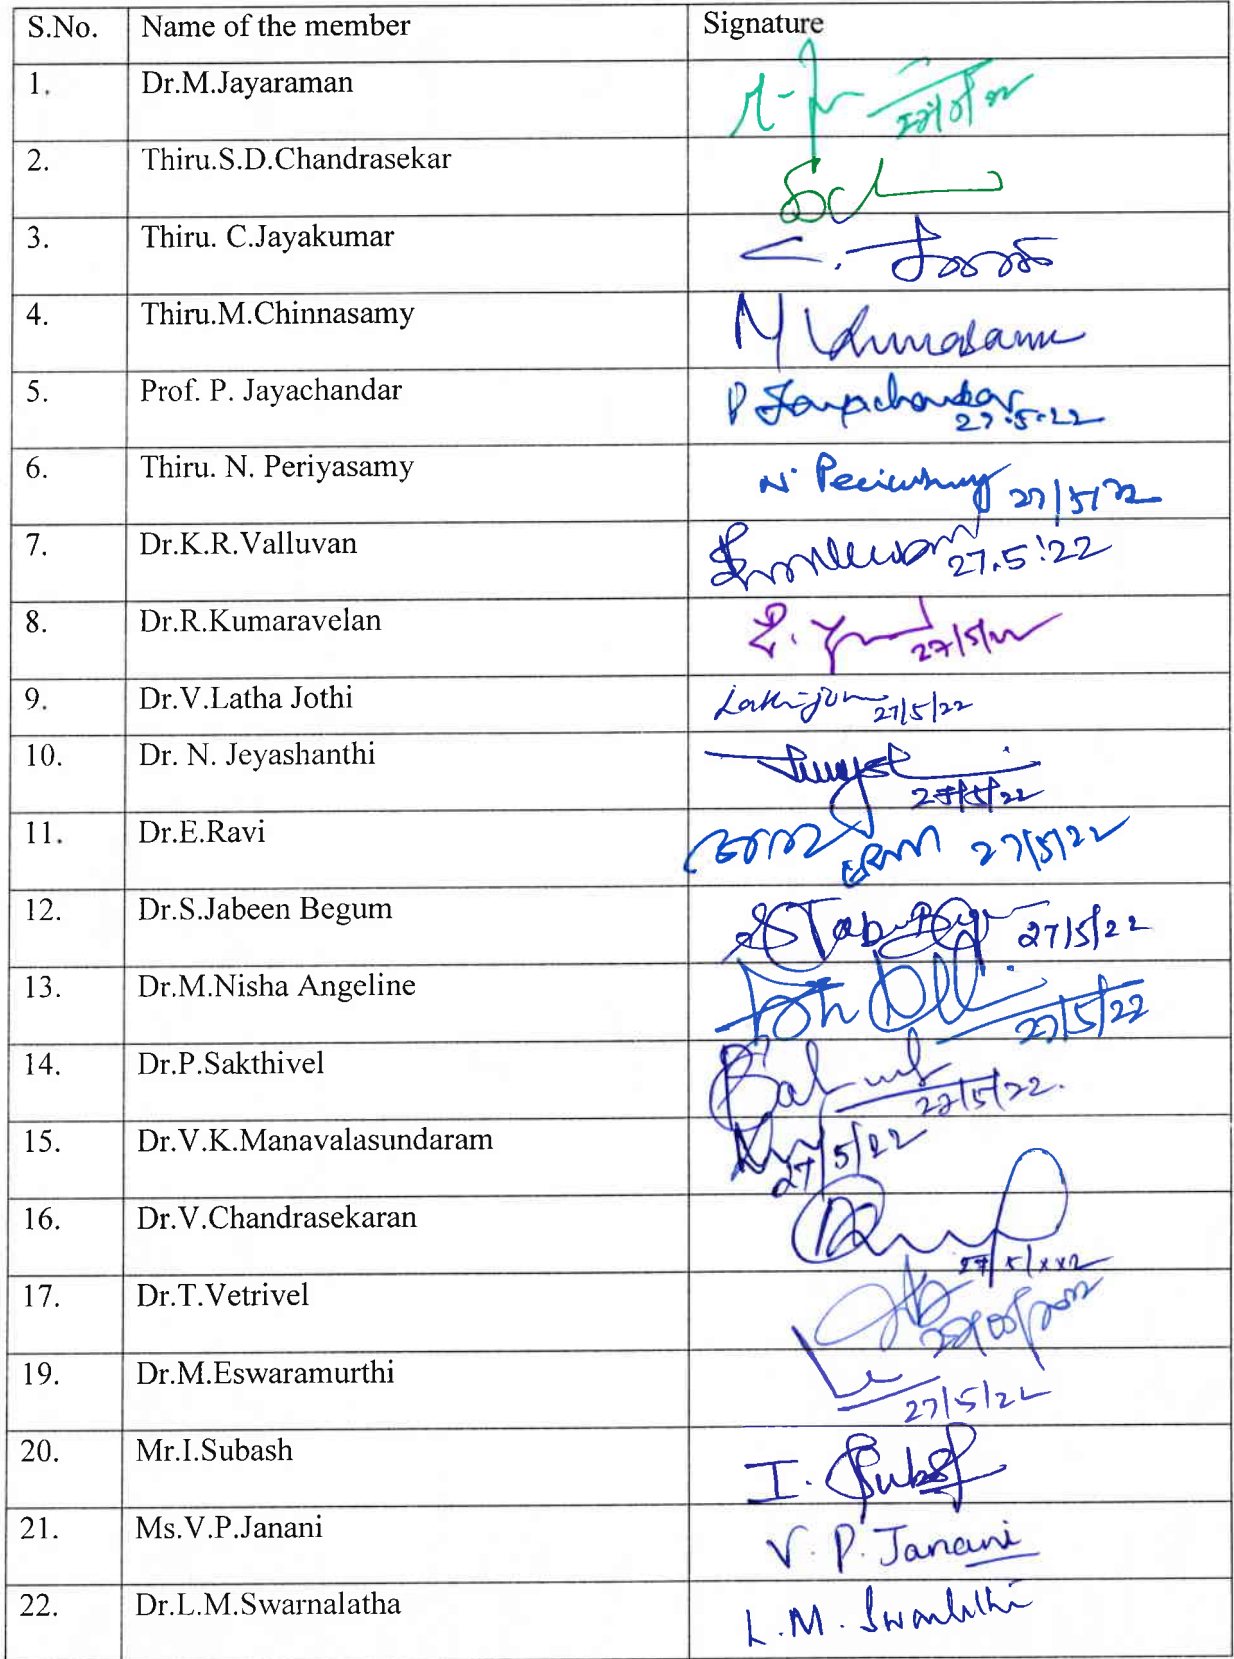 S.No. Name of the member Signature
1. Dr.M.Jayaraman
2. Thiru.S.D.Chandrasekar
3. Thiru. C.Jayakumar
4. Thiru.M.Chinnasamy M
5. Prof. P. Jayachandar P Jayachandar 27.5.22
6. Thiru. N. Periyasamy N. 27/5/22
7. Dr.K.R.Valluvan 27.5.22
8. Dr.R.Kumaravelan 27/5/22
9. Dr.V.Latha Jothi 27/5/22
10. Dr. N. Jeyashanthi 27/5/22
11. Dr.E.Ravi 27/5/22
12. Dr.S.Jabeen Begum 27/5/22
13. Dr.M.Nisha Angeline 27/5/22
14. Dr.P.Sakthivel 27/5/22.
15. Dr.V.K.Manavalasundaram 27/5/22
16. Dr.V.Chandrasekaran
17. Dr.T.Vetrivel
19. Dr.M.Eswaramurthi 27/5/22
20. Mr.I.Subash I. Subash
21. Ms.V.P.Janani V. P. Janani
22. Dr.L.M.Swarnalatha L.M.